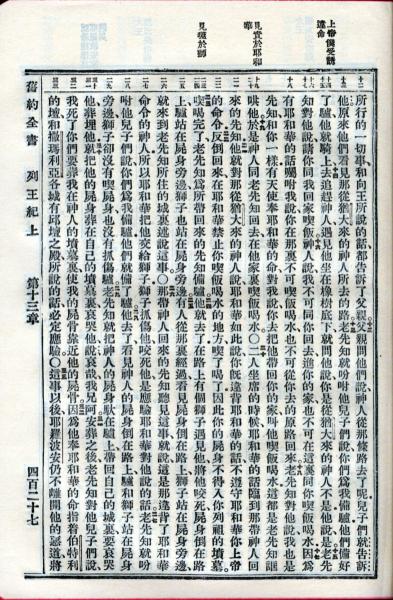 上帝僕受誘
違命
見責於耶和
華
見殛於獅
所行的一切事和向王所說的話都告訴了父親父親問他們說神人從那條路去了呢兒子們就告訴
他原來他們看見那從猶大來的神人所去的路老先知就吩咐他兒子們說你們爲我備驢他們備好
了驢他就騎上去追趕神人遇見他坐在橡樹底下就問他說你是從猶大來的神人不是他說是老先
知對他說請你同我回家喫飯神人說我不可同你回去進你的家也不可在這裏同你喫飯喝水因爲
有耶和華的話囑咐我說你在那裏不可喫飯喝水也不可從你去的原路回來老先知對他說我也是
先知和你一樣有天使奉耶和華的命對我說你去把他帶回你的家叫他喫飯喝水這都是老先知誆
哄他於是神人同老先知回去在他家裏喫飯喝水〇二人坐席的時候耶和華的話臨到那帶神人回
來的先知他就對那從猶大來的神人說耶和華如此說你旣違背耶和華的話不遵守耶和華你上帝
的命令反倒回來在耶和華禁止你喫飯喝水的地方喫了喝了因此你的屍身不得入你列祖的墳墓
喫喝完了老先知爲所帶回來的先知備驢他就去了在路上有個獅子遇見他將他咬死屍身倒在路
上驢站在屍身旁邊獅子也站在屍身旁邊有人從那裏經過看見屍身倒在路上獅子站在屍身旁邊
就來到老先知所住的城裏述說這事〇那帶神人回來的先知聽見這事就說這是那違背了耶和華
命令的神人所以耶和華把他交給獅子獅子抓傷他咬死他是應驗耶和華對他說的話老先知就吩
咐他兒子們說你們爲我備驢他們就備了驢他去了看見神人的屍身倒在路上驢和獅子站在屍身
旁邊獅子却沒有喫屍身也沒有抓傷驢老先知就把神人的屍身馱在驢上帶回自己的城裏要哀哭
他葬埋他就把他的屍身葬在自己的墳墓裏哀哭他說哀哉我兄阿安葬之後老先知對他兒子們說
我死了你們要葬我在神人的墳墓裏使我的屍骨靠近他的屍骨因爲他奉耶和華的命指着伯特利
的壇和撒瑪利亞各城有邱壇之殿所說的話必定應驗〇這事以後耶羅波安仍不離開他的惡道將
舊約全書 列王紀上 第十三章 四百二十七